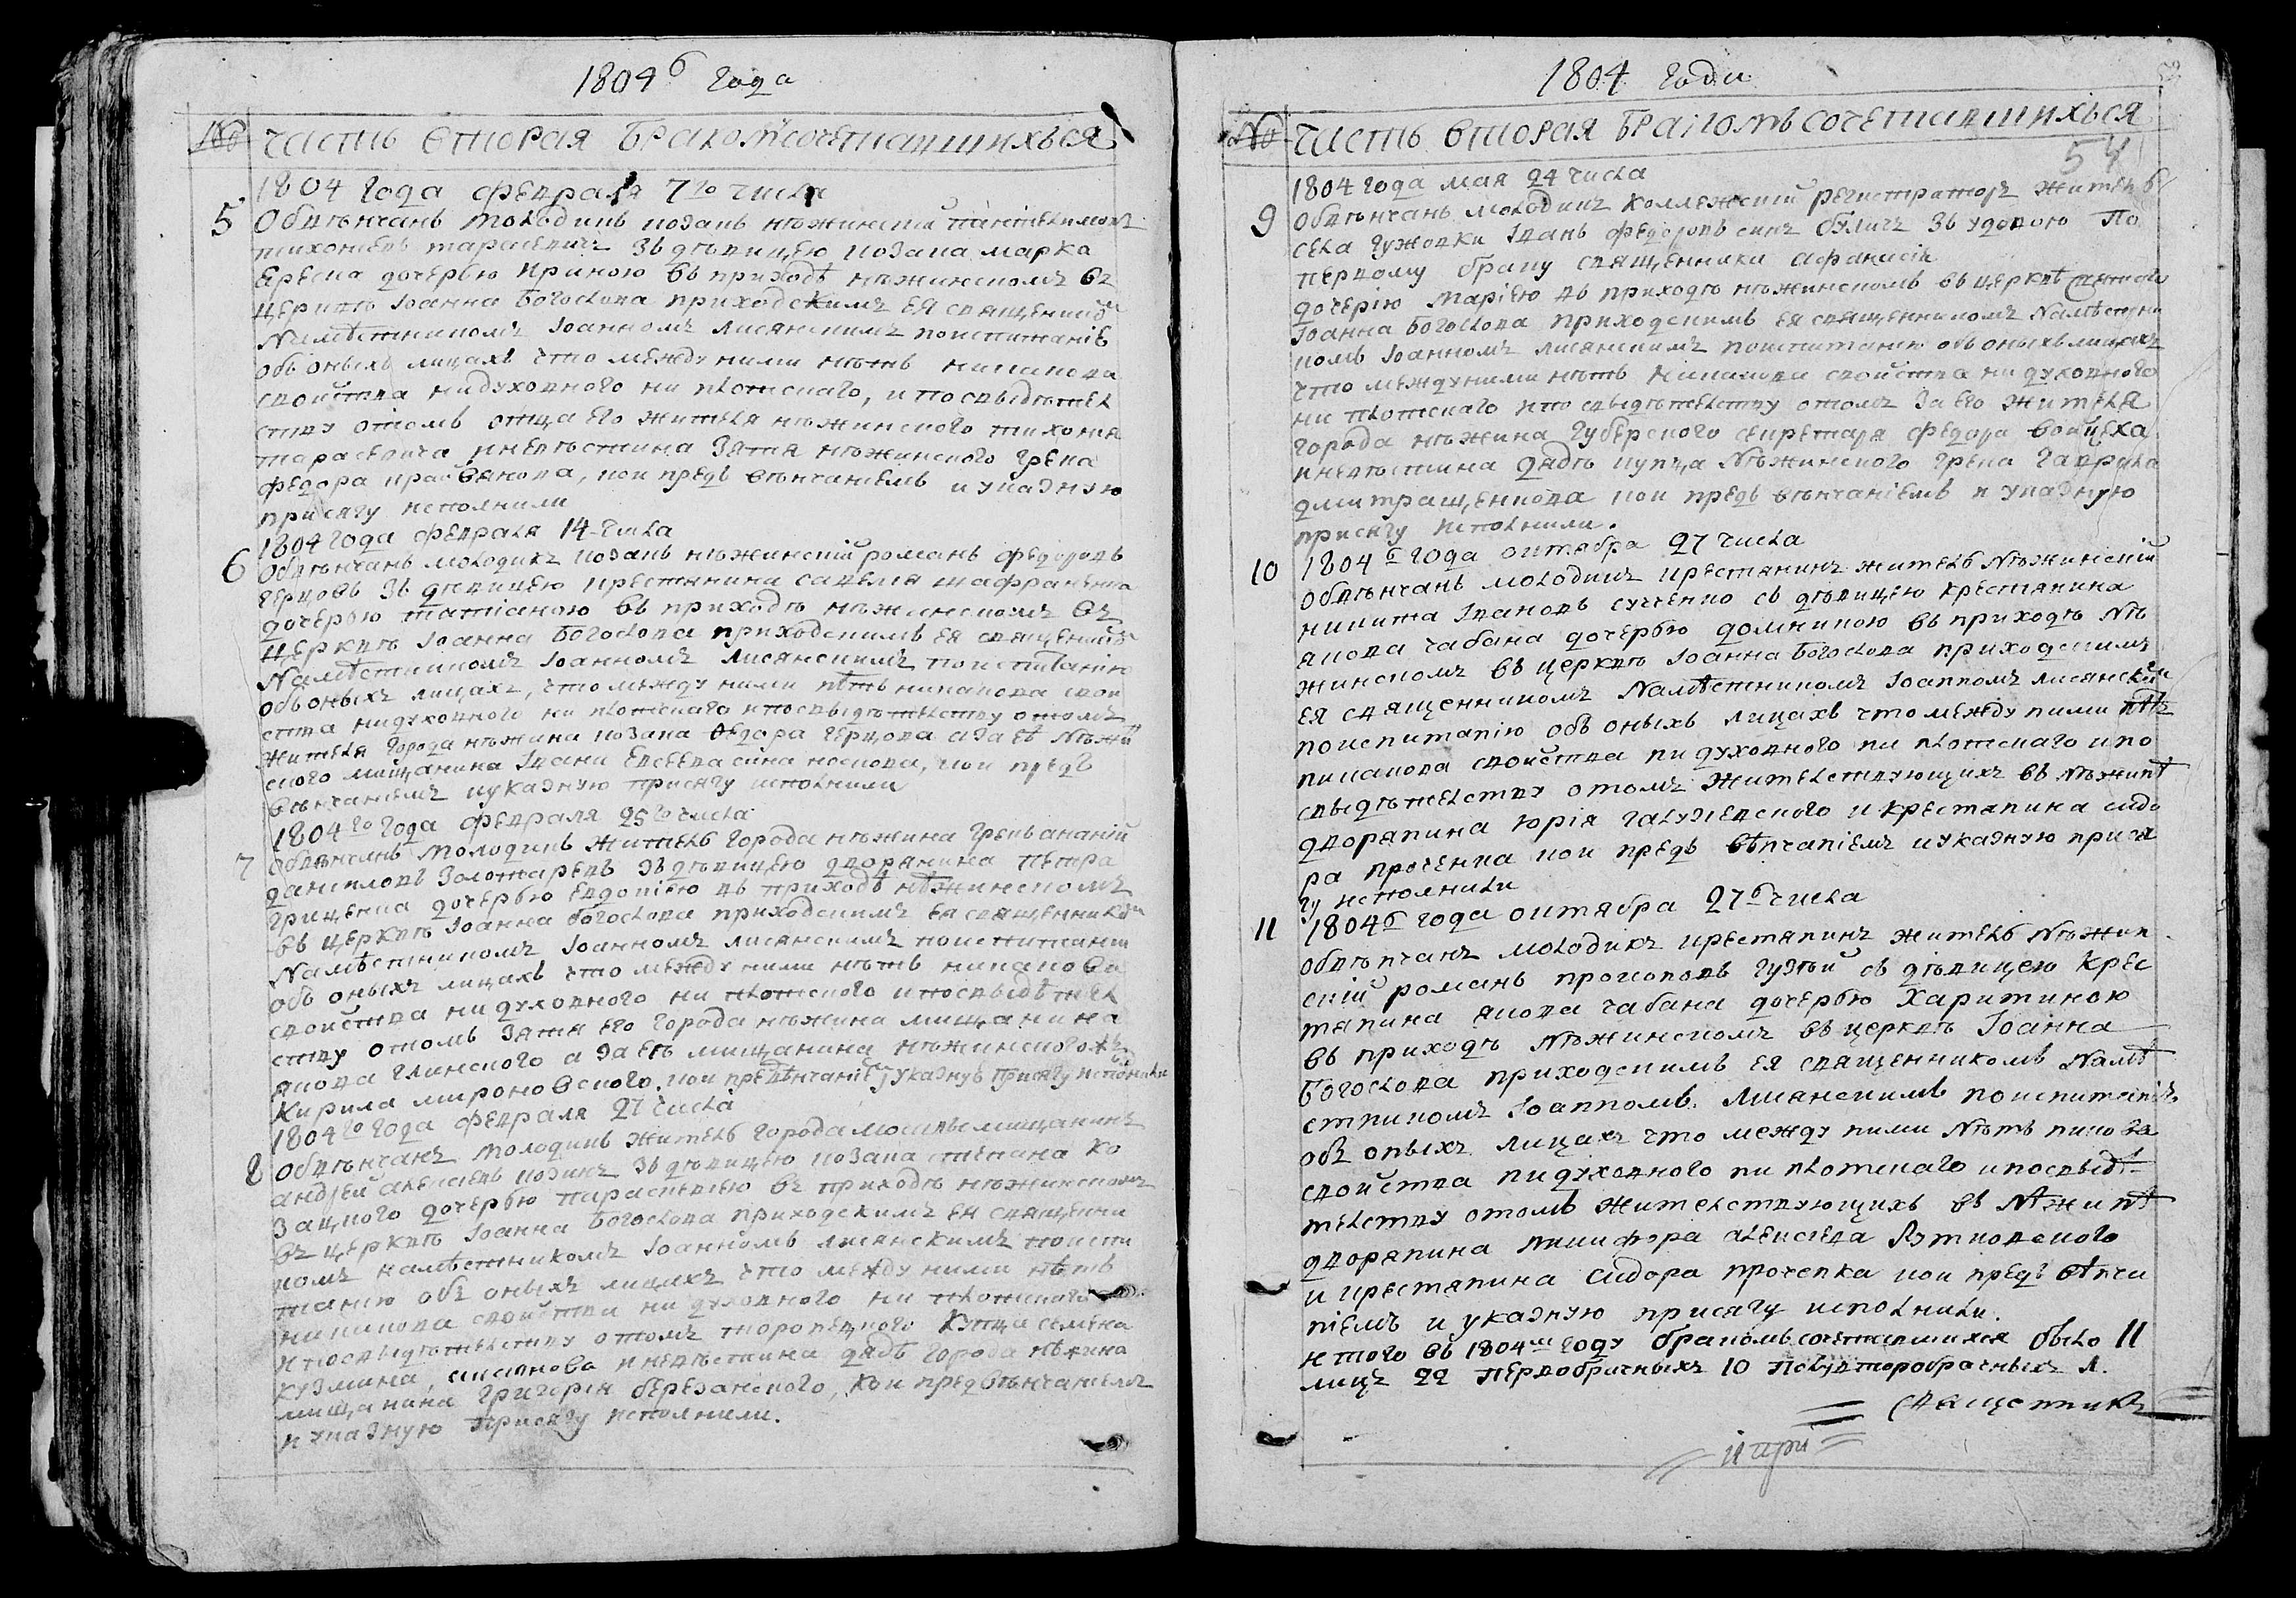 1804 года
№ часть вторая бракомъ сочетавшихъся
1804 года февраля 7го числа
5 Обвѣнчанъ молодикъ козакъ нѣжинскій пантелимонъ
тихоновъ тарасевичъ зъ дѣвицею козака марка
дочерью Ириною въ приходѣ нѣжинскомъ въ
церкви Іоанна Богослова приходскимъ ея священико
Намѣстникомъ Іоанномъ лисянскимъ поиспитаніе
объ оныхъ лицахъ что между ними нѣтъ никакова
свойства нидуховного ни плотскаго, и посвыдѣтел
ству отомъ отца его жителя нѣжинского тихона
тарасевича иневѣстина Зятя нѣжинского Грека
федора, кои предъ вѣнчаніемъ и указную
присягу исполнили
1804 года февраля 14 числа
6 обвѣнчанъ молодикъ козакъ нѣжинскій романъ федоровъ
герцовъ зъ дѣвицею крестянина савелія шафраненка
дочерью татіаною въ приходѣ нѣжинскомъ въ
церквѣ Іоанна Богослова приходскимъ ея священико
Намѣстникомъ Іоанномъ лисянскимъ поиспитанію
объ оныхъ лицахъ, что между ними нѣтъ никакова свой
ства нидуховного ни плотскаго ипосвыдѣтелству отомъ
жителя города нѣжина козака федора герцова а за еѣ Нѣжи
ского мищанина Івана Евсеева сина носкова, кои предъ
вѣнчаніемъ иуказную присягу исполнили
1804го года февраля 25го числа
7 обвѣнчанъ молодикъ житель города нѣжина грекъ ананій
даниловъ Золотаревъ зъ дѣвицею дворянина петра
грищенка дочерью евдокіею въ приходѣ нѣжинскомъ
въ церквѣ Іоанна Богослова приходскимъ ея священнико
Намѣстникомъ Іоанномъ лисянскимъ поиспитанію
объ оныхъ лицахъ что между ними нѣтъ никакова
свойства нидуховного ни плотского ипосвыдѣтел
ству отомъ зятя его города нѣжина мищанина
якова глинского а за еѣ мищанина нѣжинского
Кирила мироновского, кои предъвѣнчаніе иуказную присягу исполнили
1804го года февраля 27 числа
8 обвѣнчанъ молодикъ житель города москвы мищанинъ
андрей алексіевъ козинъ зъ дѣвицею козака степана ко
зацкого дочерью параскевіею въ приходѣ нѣжинскомъ
въ церквѣ Іоанна Богослова приходскимъ ея священни
комъ намѣстникомъ Іоанномъ лисянскимъ поиспи
танію объ оныхъ лицахъ что между ними нѣтъ
никакова свойства ни духовного ни плотского
ипосвыдѣтелству отомъ торопецкого Купца семена
кузмина иневѣстина дядѣ города нѣжина
мищанина григорія березанского, кои предвѣнчаніемъ
и указную присягу исполнили.
1804 года
№ часть вторая бракомъ сочетавшихъся
54
1804 года мая 24 числа
9 обвѣнчанъ молодикъ коллежскій регистраторъ житель
села гужовки Іванъ федоровъ синъ булигъ зъ удовою По
первому браку священника афанасія
дочерію Маріею въ приходѣ нѣжинскомъ въ церквѣ святого
Іоанна Богослова приходскимъ ея священникомъ Намѣстни
комъ Іоанномъ лисянскимъ поиспитанію объ оныхъ лицахъ
что междуними нѣтъ никакова свойства ни духовного
ни плотскаго ипо свыдѣтелству отомъ за его жителя
города нѣжина губерского секретаря федора войцеха
иневѣстина дядѣ купца Нѣжинского грека гаврила
дмитращенкова кои предъ вѣнчаніемъ и указную
присягу исполнили.
1804 года октября 27 числа
10 обвѣнчанъ молодикъ крестянинъ житель Нѣжинскій
никита Івановъ сученко съ дѣвицею крестянина
якова чабана дочерью домникою въ приходѣ Нѣ
жинскомъ въ церквѣ Іоанна Богослова приходскимъ
ея священникомъ Намѣстникомъ Іоанномъ лисянским
поиспитанію объ оныхъ лицахъ что между ними нѣтъ
никакова свойства ни духовного ни плотскаго и по
свыдѣтелству отомъ жителствующихъ въ Нѣжинѣ
дворянина юрія галузевского и крестянина сидо
ра проченка кои предъ вѣнчаніемъ иуказную прися
гу исполнили
1804 года октября 27 числа
11 обвѣнчанъ молодикъ крестянинъ житель Нѣжин
скій романъ прокоповъ гузѣй съ дѣвицею Крес
тянина якова чабана дочерью Харитиною
въ приходѣ Нѣжинскомъ въ церквѣ Іоанна
Богослова приходскимъ ея священникомъ Намѣ
стникомъ Іоанномъ Лисянскимъ поиспитаніе
объ оныхъ лицахъ что между ними Нѣтъ никова
свойства ни духовного ни плотскаго ипосвыдѣ
телству отомъ жителствующихъ въ Нѣжинѣ
дворянина никифора алексіева
и крестянина сидора проченка кои предъ вѣнча
ніемъ и указную присягу исполнили.
итого въ 1804м году бракомъ сочетавшихся было 11
лицъ 22 первобрачныхъ 10
Священникъ